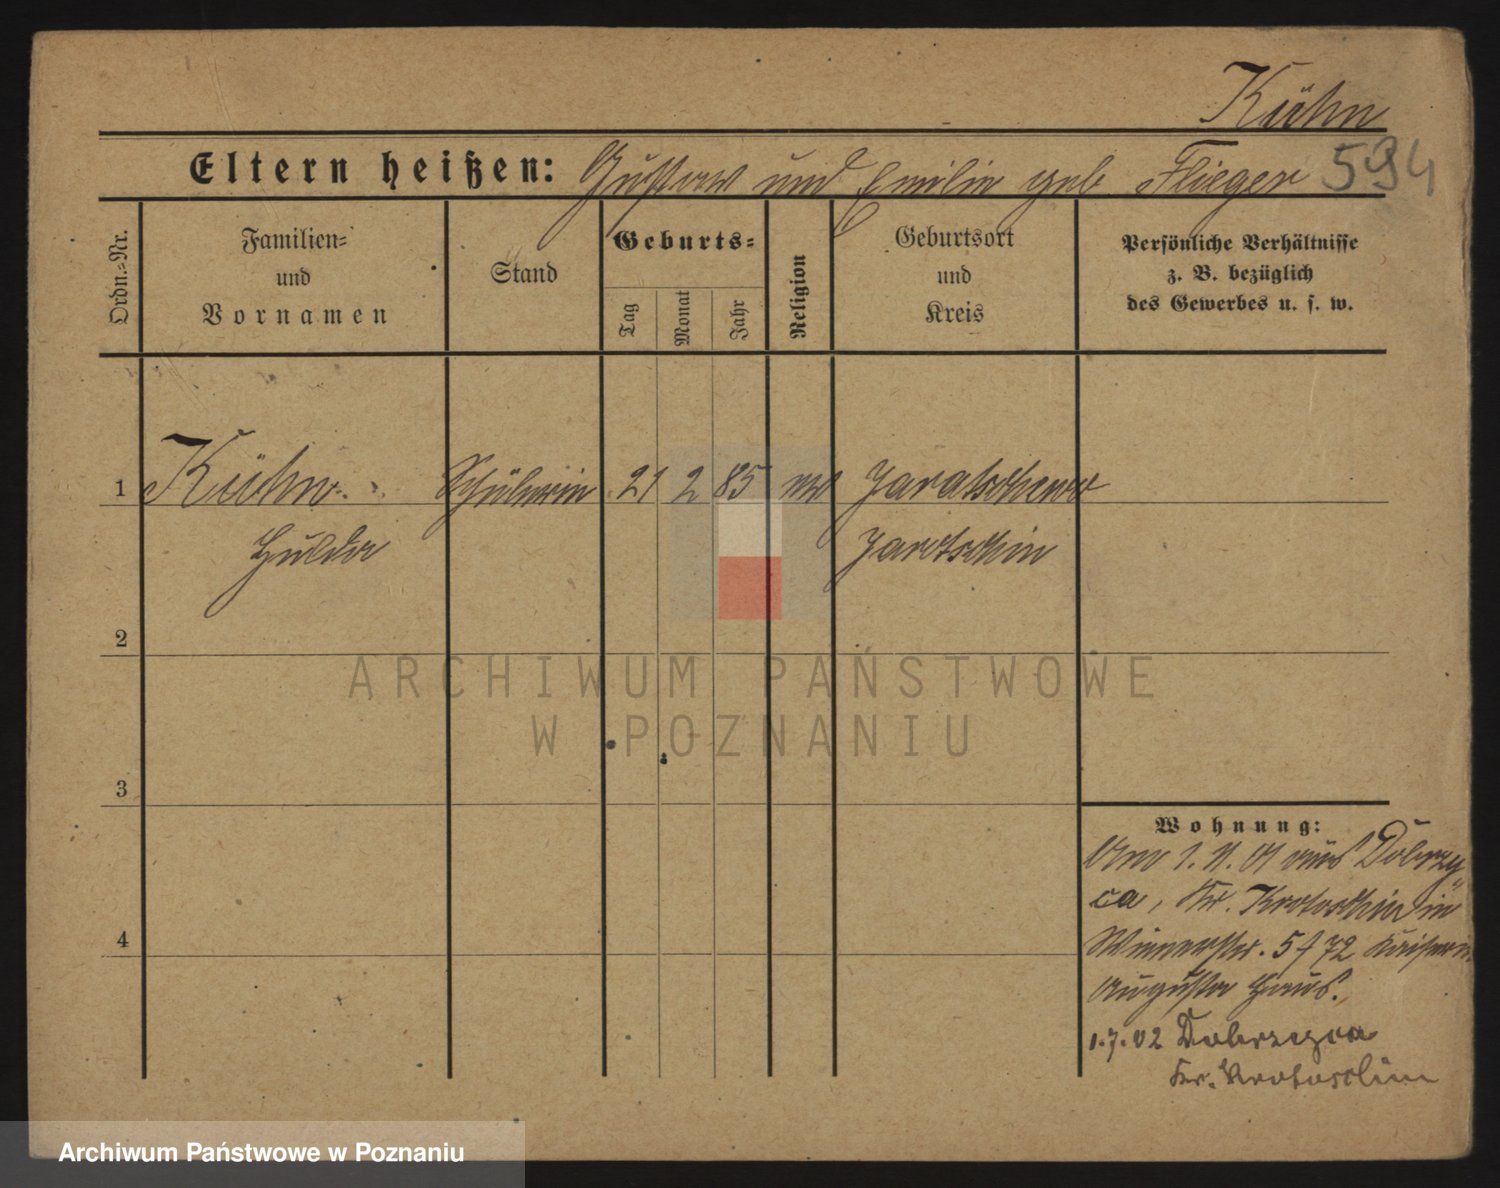 Kühn
Eltern heißen: Gustav und Emilie geb. Flieger 594
Ordn.=Nr.
Familien=
und
Vornamen
Stand
Geburts=
Tag
Monat
Jahr
Religion
Geburtsort
und
Kreis
Persönliche Verhältnisse
z. B. bezüglich
des Gewerbes u. s. w.
1 Kühn Schülerin 21 2 85 ev Jaratschewo
Hulda Jarotschin
2
3
4
Wohnung:
Am 1. 11. 01 aus Dobrzy
ca, Kr. Krotoschin in
72 Kaiserin
Augusta Haus.
1.7.02 Dobrzyca
Kr. Krotoschin
ARCHIWUM PAŃSTWOWE
W POZNANIU
Archiwum Państwowe w Poznaniu